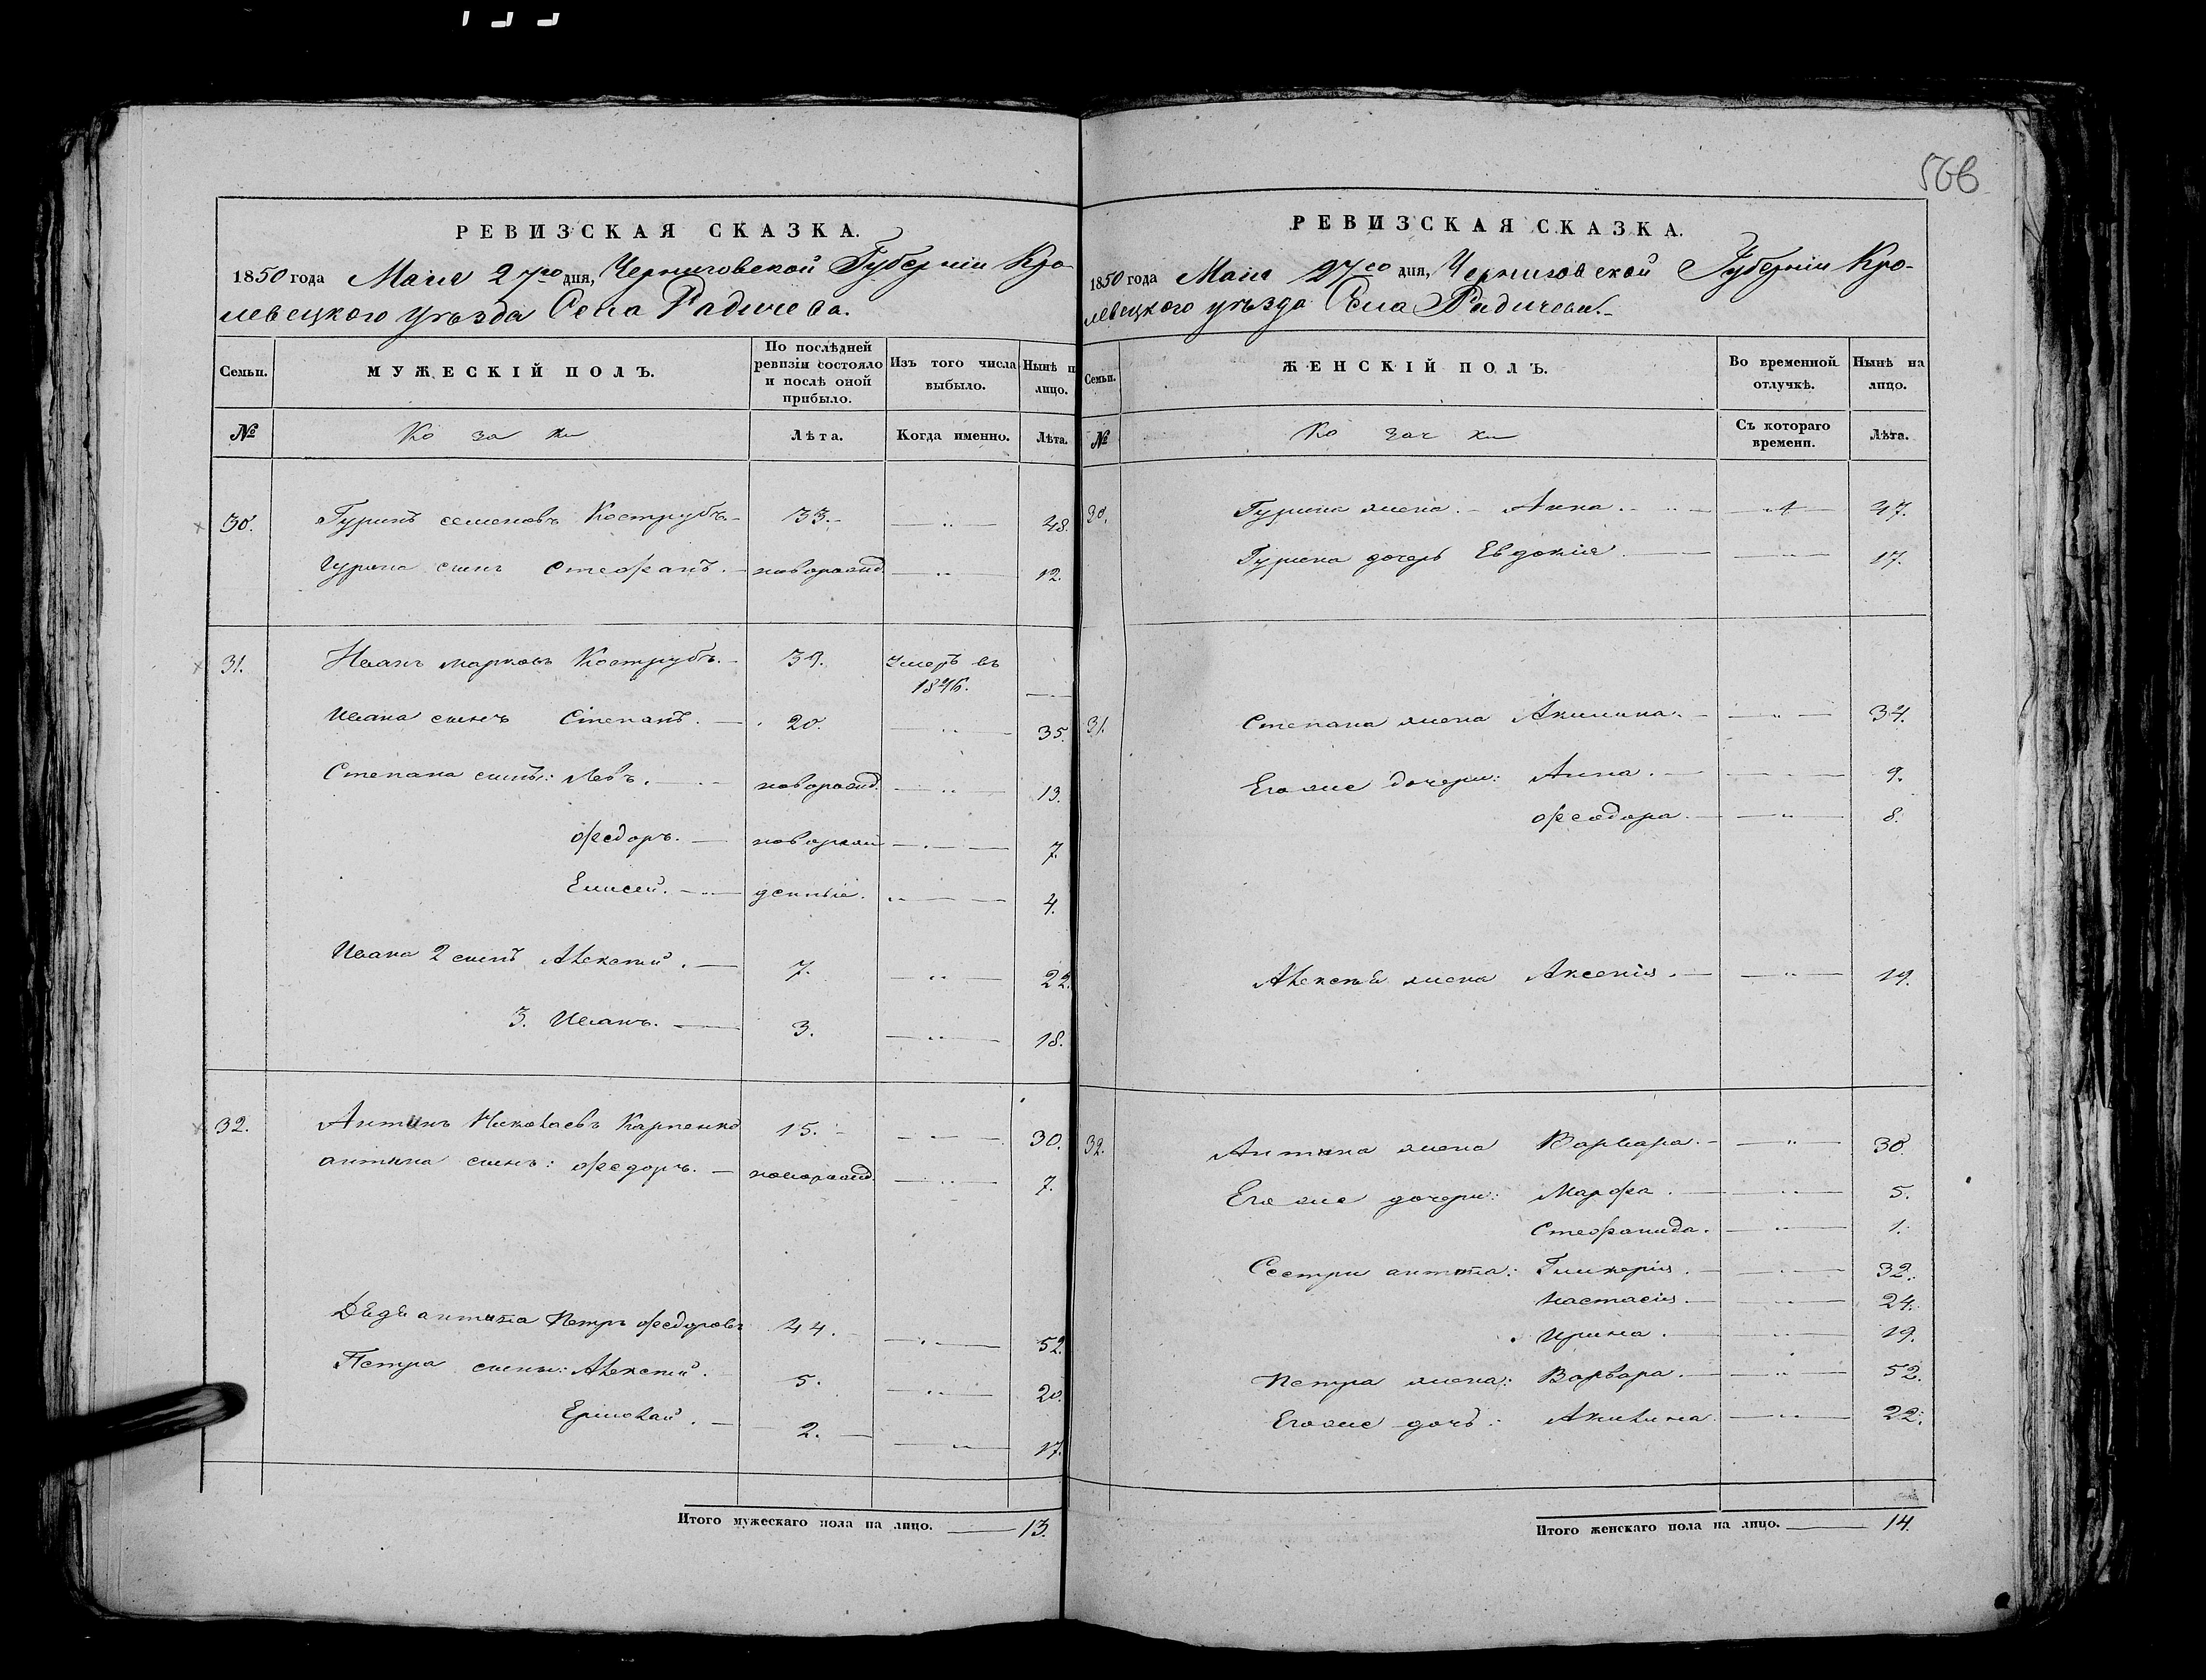 566
РЕВИЗСКАЯ СКАЗКА.
1850 года Мая 27го дня, Черниговской Губерніи Кро-
левецкого уѣзда Села Радичева.
Семьи. МУЖЕСКІЙ ПОЛЪ. По послѣдней ревизіи состояло и послѣ оной прибыло. Изъ того числа выбыло. Нынѣ н лицо.
№ Козаки Лѣта. Когда именно. Лѣта.
30. Гуринъ семеновъ Кострубъ 33. 48.
Гурина синъ Стефанъ. новорожд. 12.
31. Иванъ марковъ Кострубъ. 39. Умеръ въ 1846.
Ивана синъ Степанъ. 20. 35.
Степана сины: Левъ. новорожд. 13.
Федоръ. ново рож 7.
Елисей. денные. 4.
Ивана 2 синъ Алексѣй. 7. 22.
3. Иванъ. 3. 18.
32. Антинъ Николаевъ Карпенко 15. 30.
антина синъ: Федоръ. новорожд. 7.
Дядя антина Петръ Федоровъ 44. 52.
Петра сины: Алексѣй. 5. 20.
Ермолай. 2. 17.
Итого мужескаго пола на лицо. 13.
РЕВИЗСКАЯ СКАЗКА.
1850 года Мая 27го дня, Черниговской Губерніи Кро-
левецкого уѣзда Села Радичева.
Семьи. ЖЕНСКІЙ ПОЛЪ. Во временной отлучкѣ. Нынѣ на лицо.
№ Козачки Съ котораго времени. Лѣта.
30. Гурина жена. Анна. 47.
Гурина дочерь Евдокія 17.
31. Степана жена Акилина. 34.
Его же дочери: Анна. 9.
Феодора. 8.
Алексѣя жена Аксенія. 19.
32. Антина жена Варвара. 30.
Его же дочери: Марфа. 5.
Стефанида. 1.
Сестри антина: Гликерія. 32.
Настасія. 24.
Ирина. 19.
Петра жена: Варвара. 52.
Его же дочь: Акилина 22.
Итого женскаго пола на лицо. 14.